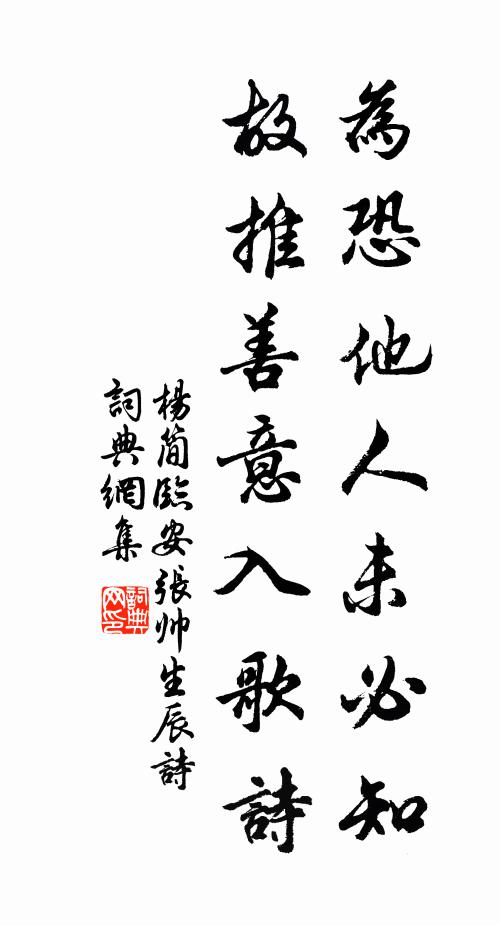 為恐他人未必知
故推善意入歌詩
楊简臨安張帅生辰詩
詞典網集
詞典网印